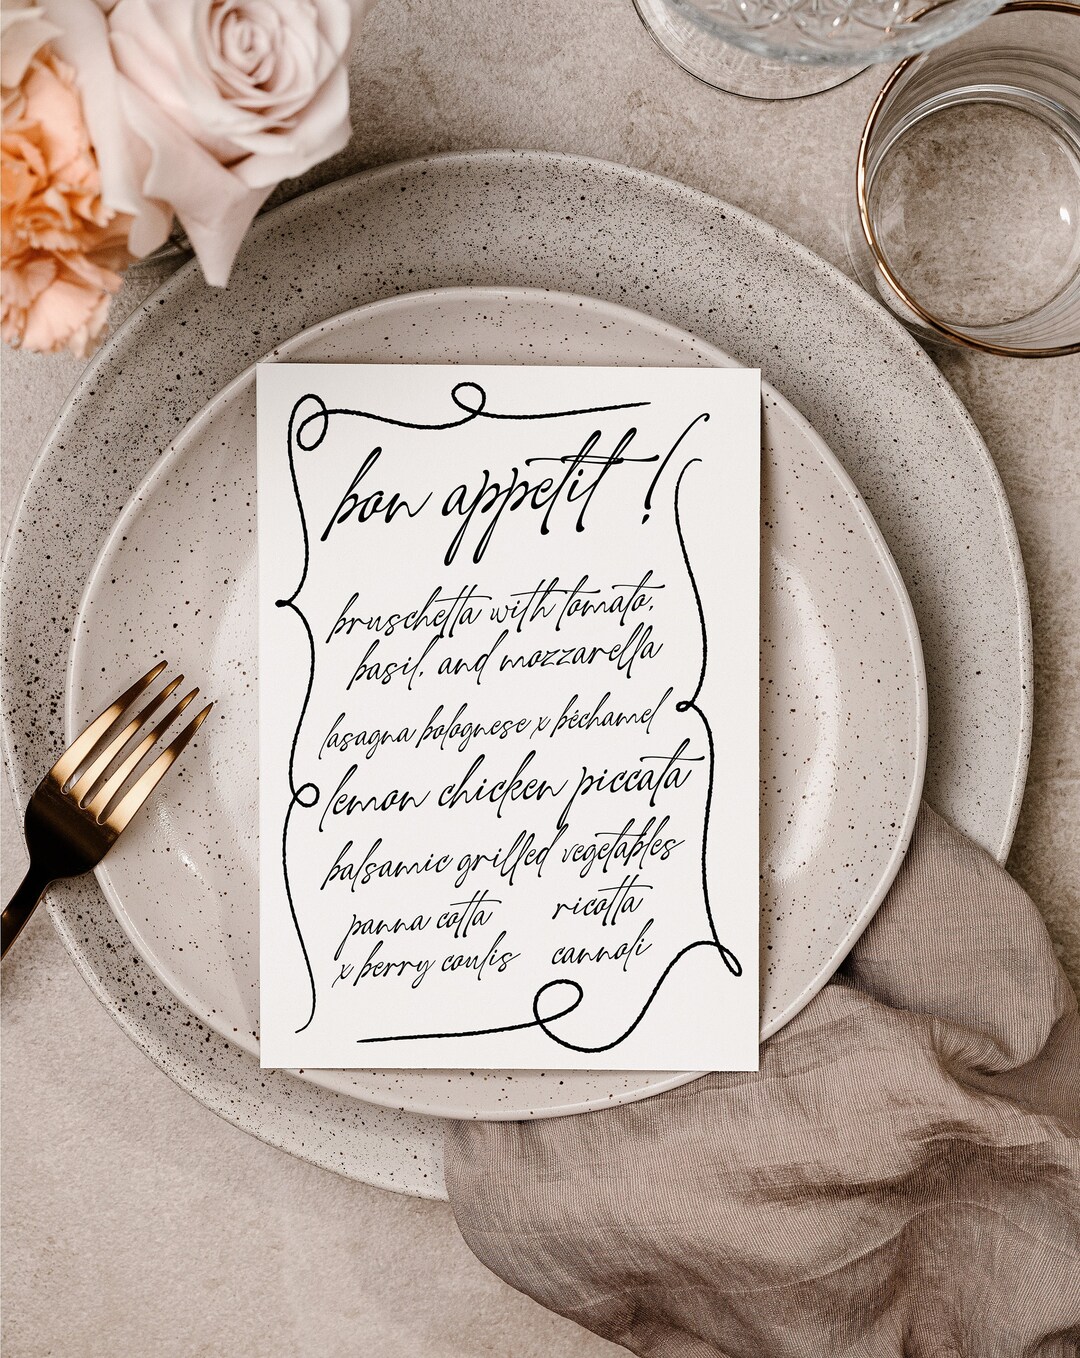 bon appetit !
bruschetta with tomato,
basil, and mozzarella
lasagna bolognese x béchamel
lemon chicken piccata
balsamic grilled vegetables
panna cotta
x berry coulis
ricotta
cannoli